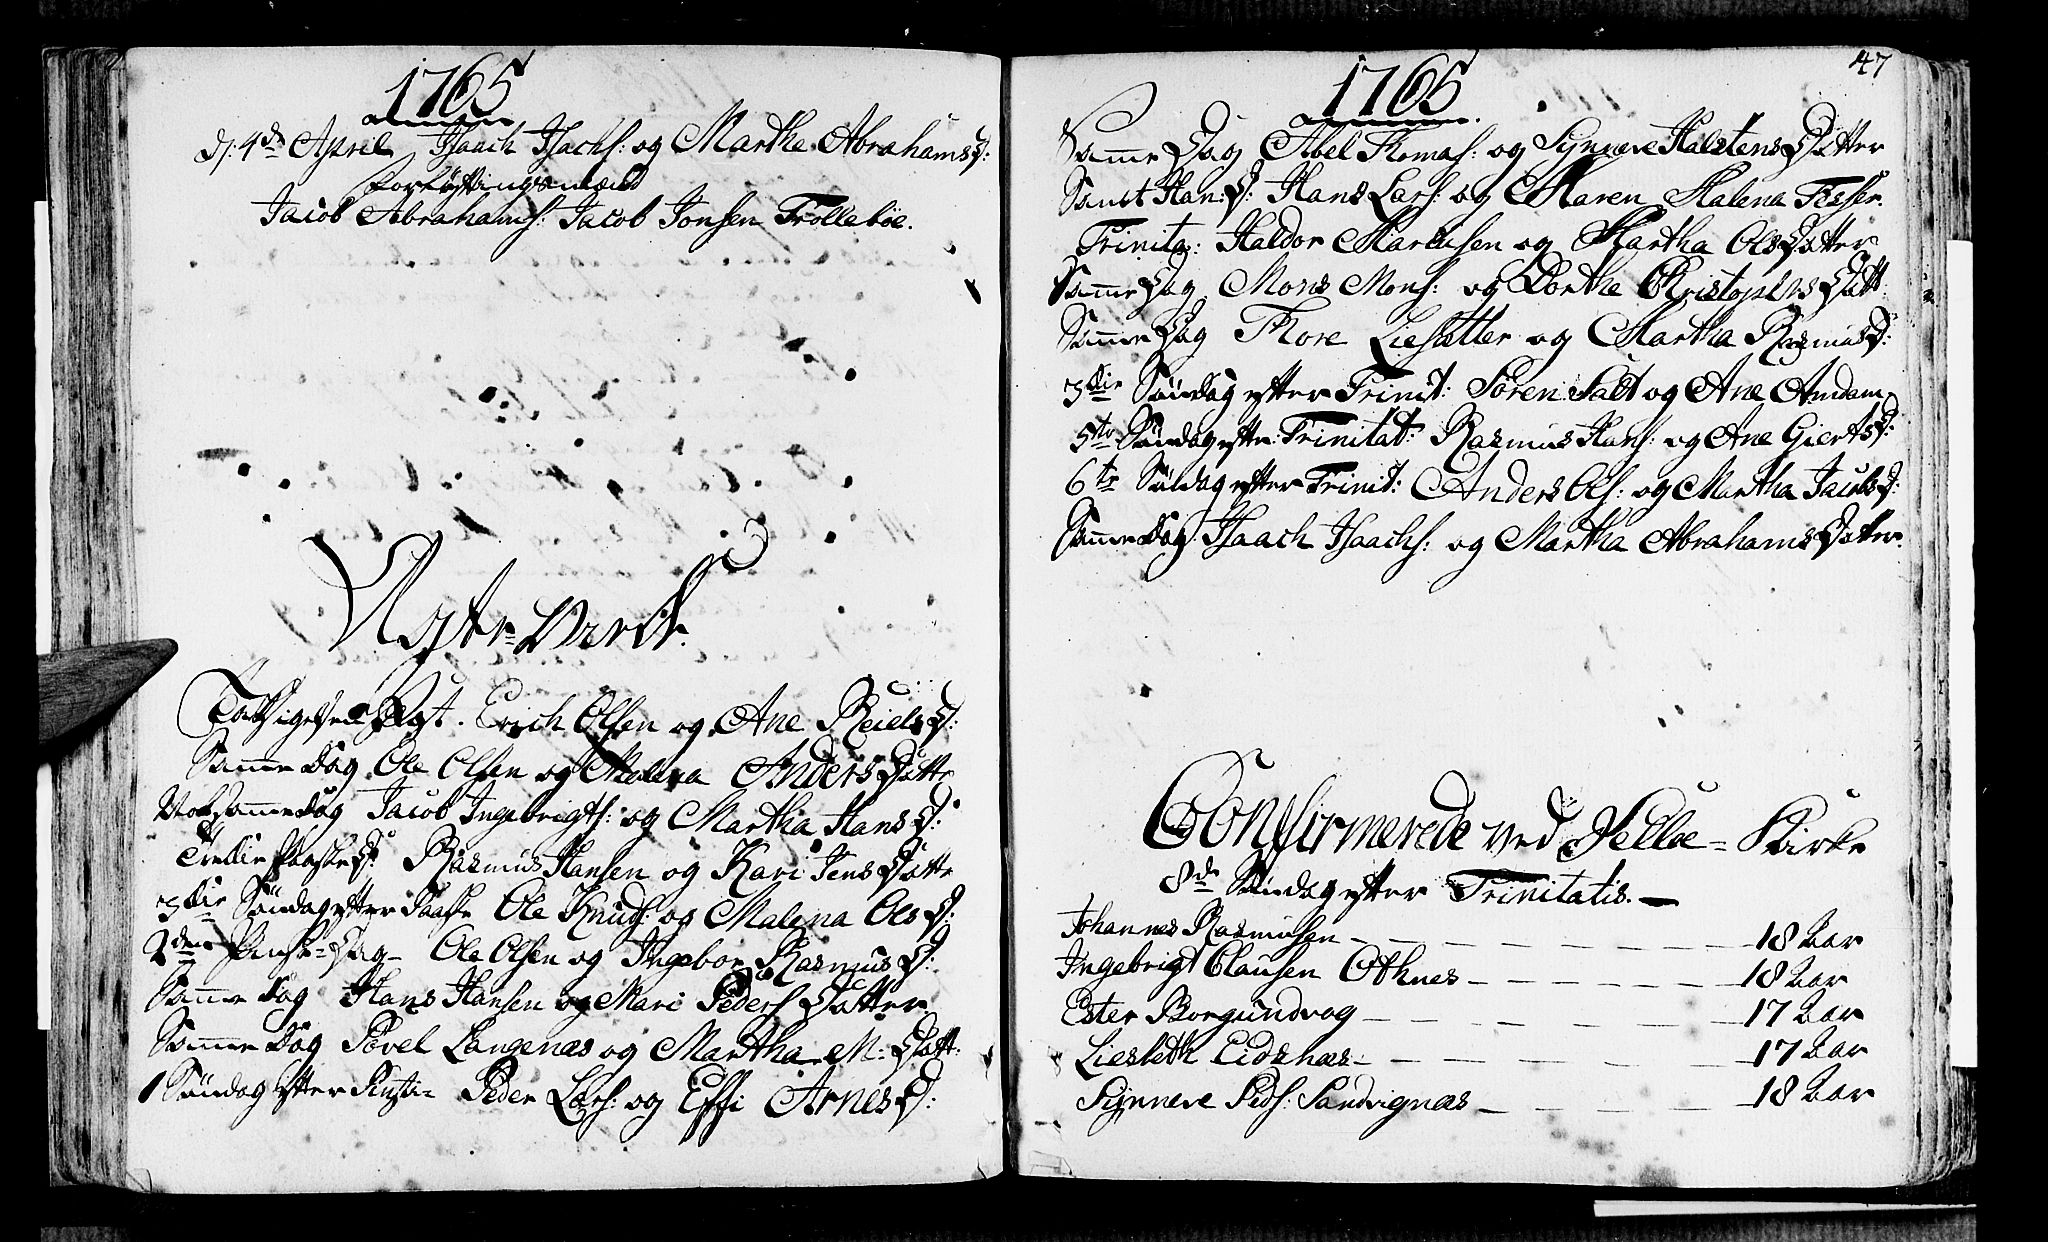 1765
d: 4de April Isaach Isachs: og Marthe Abrahams D:
Forløftningsmænd
Jacob Abrahams: Jacob Jonsen Trollebøe.
Ægte-Viede
Taksigelsens Erich Olsen og Ane Reiels D:
Samme Dag Ole Olsen og Malena Anders Datte
Nok samme Dag Jacob Ingebrigts: og Martha Hans D:
Tredie Paaske D: Rasmus Hansen og Kari Jens Datte
3die Søndag efter Paaske Ole Knuds: og Malena Ols D:
2den Pinse-Dag Ole Olsen og Ingebor Rasmus D:
Samme Dag Hans Hansen og Mari Peders Datter
Samme Dag Povel Langenæs og Martha M: Datt:
1 Søndag efter Peder Lars: og Effi Arnes D:
1765
47
Samme Dag Abel Thomas: og Synneve Halstens Datter
Sanct Hans D: Hans Lars: og Maren Malena
Trinita: Haldor Marcusen og Martha Ols Datter
Samme Dag Mons Mons: og Dorthe Christophers Datt:
Samme Dag Thore Liesætter og Martha Rasmus D:
3die Søndag efter Trinit: Søren Salt og Ane Amdam
5te Søndag efter Trinitat: Rasmus Hans: og Ane Gierts D:
6te Søndag efter Trinit: Anders Ols: og Martha Jacobs D:
Samme Dag Isaach Isaachs: og Martha Abrahams Datter.
Confirmerede ved Selløe-Kirke
8de Søndag efter Trinitatis.
Johannes Rasmusen 18 Aar
Ingebrigt Clausen Othnes 18 Aar
Ester Borgundvog 17 Aar
Liesbeth Eidsnæs 17 Aar
Synneve Peds: Sandvignæs 18 Aar